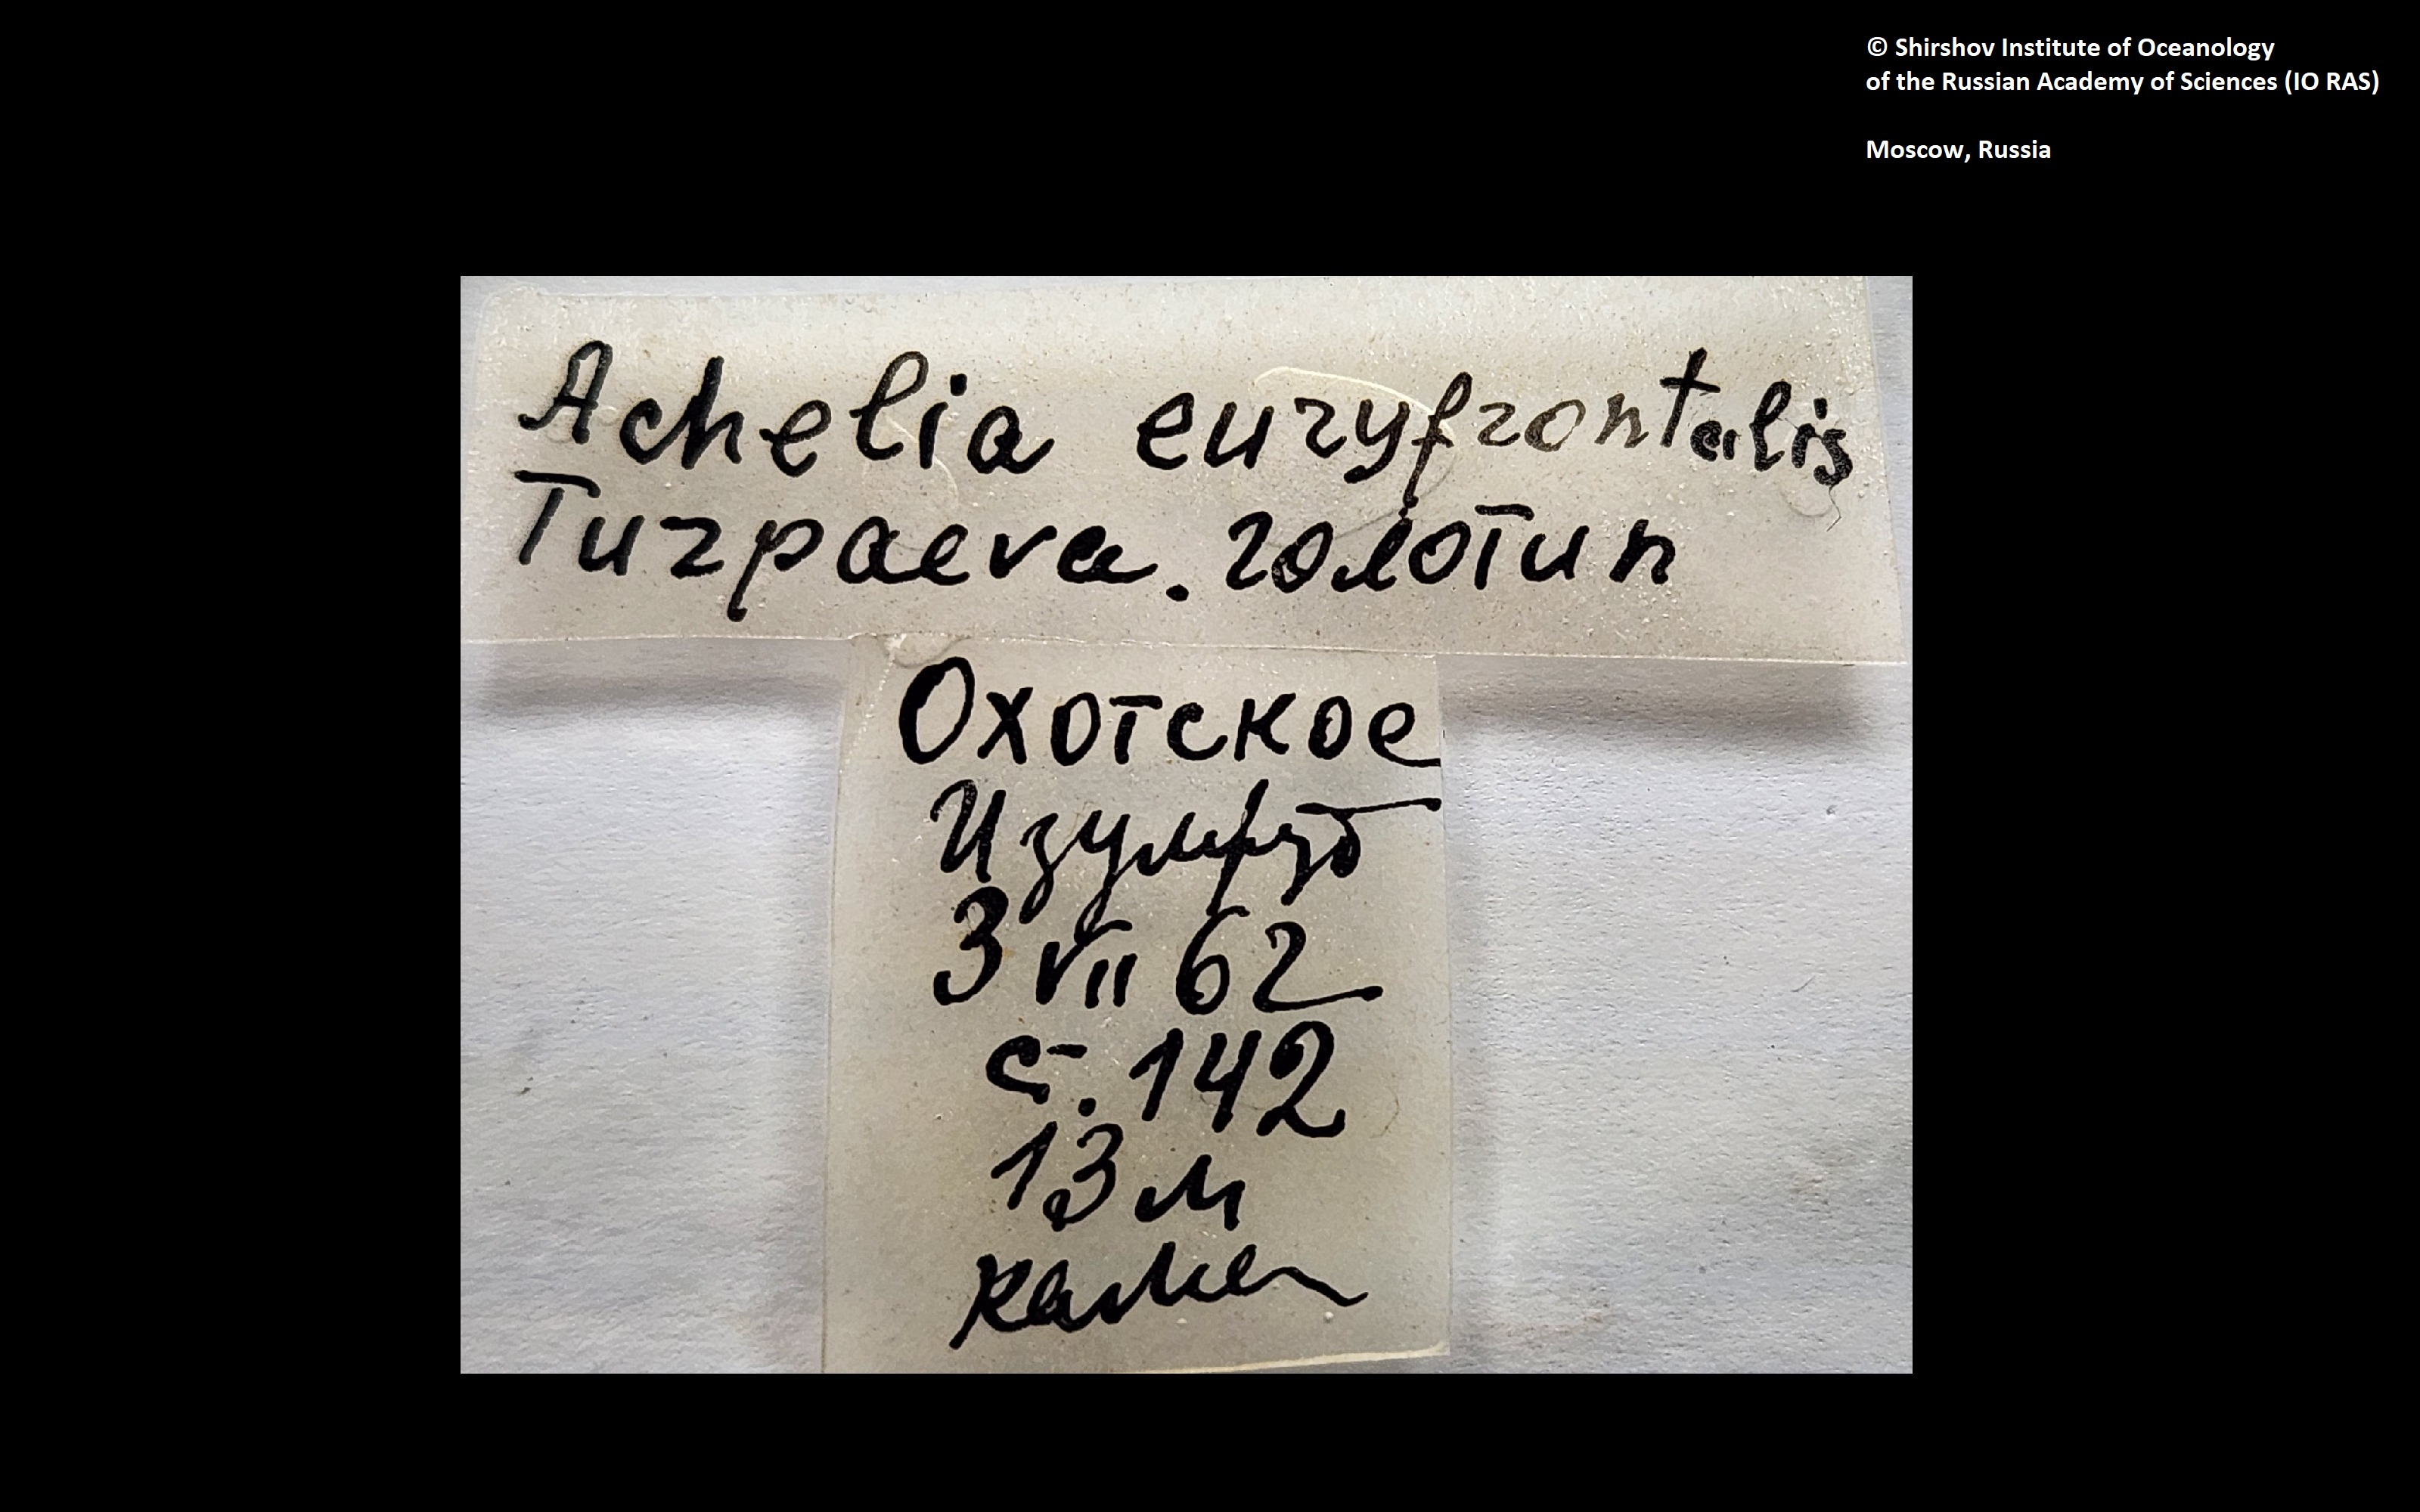 © Shirshov Institute of Oceanology
of the Russian Academy of Sciences (IO RAS)
Moscow, Russia
Achelia euryfrontalis
Turpaeva. голотип
Охотское
Изумруд
3 VII 62
с. 142
13 м
камен